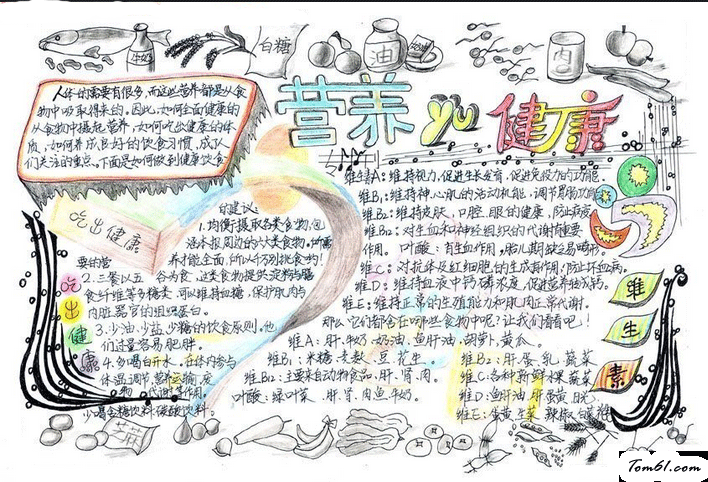 牛奶
白糖
油
肉
营养 yu 健康
人体的需要有很多,而这些营养都是从食
物中吸取得来的,因此,如何全面健康的
从食物中摄起营养,如何吃出健康的体
质,如何养成良好的饮食习惯,成人
们关注的重点,下面是如何做到健康饮食
的建议:
吃出健康
1.均衡摄取各类食物,包
养才能全面,所以千万别挑食哟!
要的营
2.三餐以五谷为食,这类食物提供淀粉与膳
食纤维等多糖类,可以维持血糖,保护肌肉与
内脏器官的组织蛋白。
3.少油,少盐,少糖的饮食原则。他
们过量容易肥胖。
4.多喝白开水,在体内参与
体温调节,营养运输,废
物代谢等作用。
少喝含糖饮料,碳酸饮料。
吃出健康
维生素A:维持视力,促进生长发育,促进免疫力的功能。
维B₁:维持神、心肌的活动机能,调节胃肠功能
维B₂:维持皮肤、口腔、眼的健康,防止
维B₁₂:对生血和神经组织的代谢有重要
作用。 叶酸:有生血作用,胎儿期缺乏易畸形。
维C:对抗体及红细胞的生成有作用,防止坏血病。
维D:维持血液中钙、磷浓度,促进营养肠成钙。
维E:维持正常的生殖能力和肌肉正常代谢。
那么它们都含在哪些食物中呢?让我们看看吧!
维A:肝、牛奶、奶油、鱼肝油、胡萝卜、黄瓜。
维B₁:米糠、麦麸、豆、花生。
维B₂:肝、蛋、乳、蔬菜
维B₁₂:主要来自动物食品、肝、肾、肉。
维C:各种新鲜水果、蔬菜
叶酸:绿叶菜、肝、肾、肉、鱼、牛奶。
维D:鱼肝油、肝、蛋黄、
维E:蛋黄、生菜、辣椒、
维
生
素
芝麻
Tom61.com